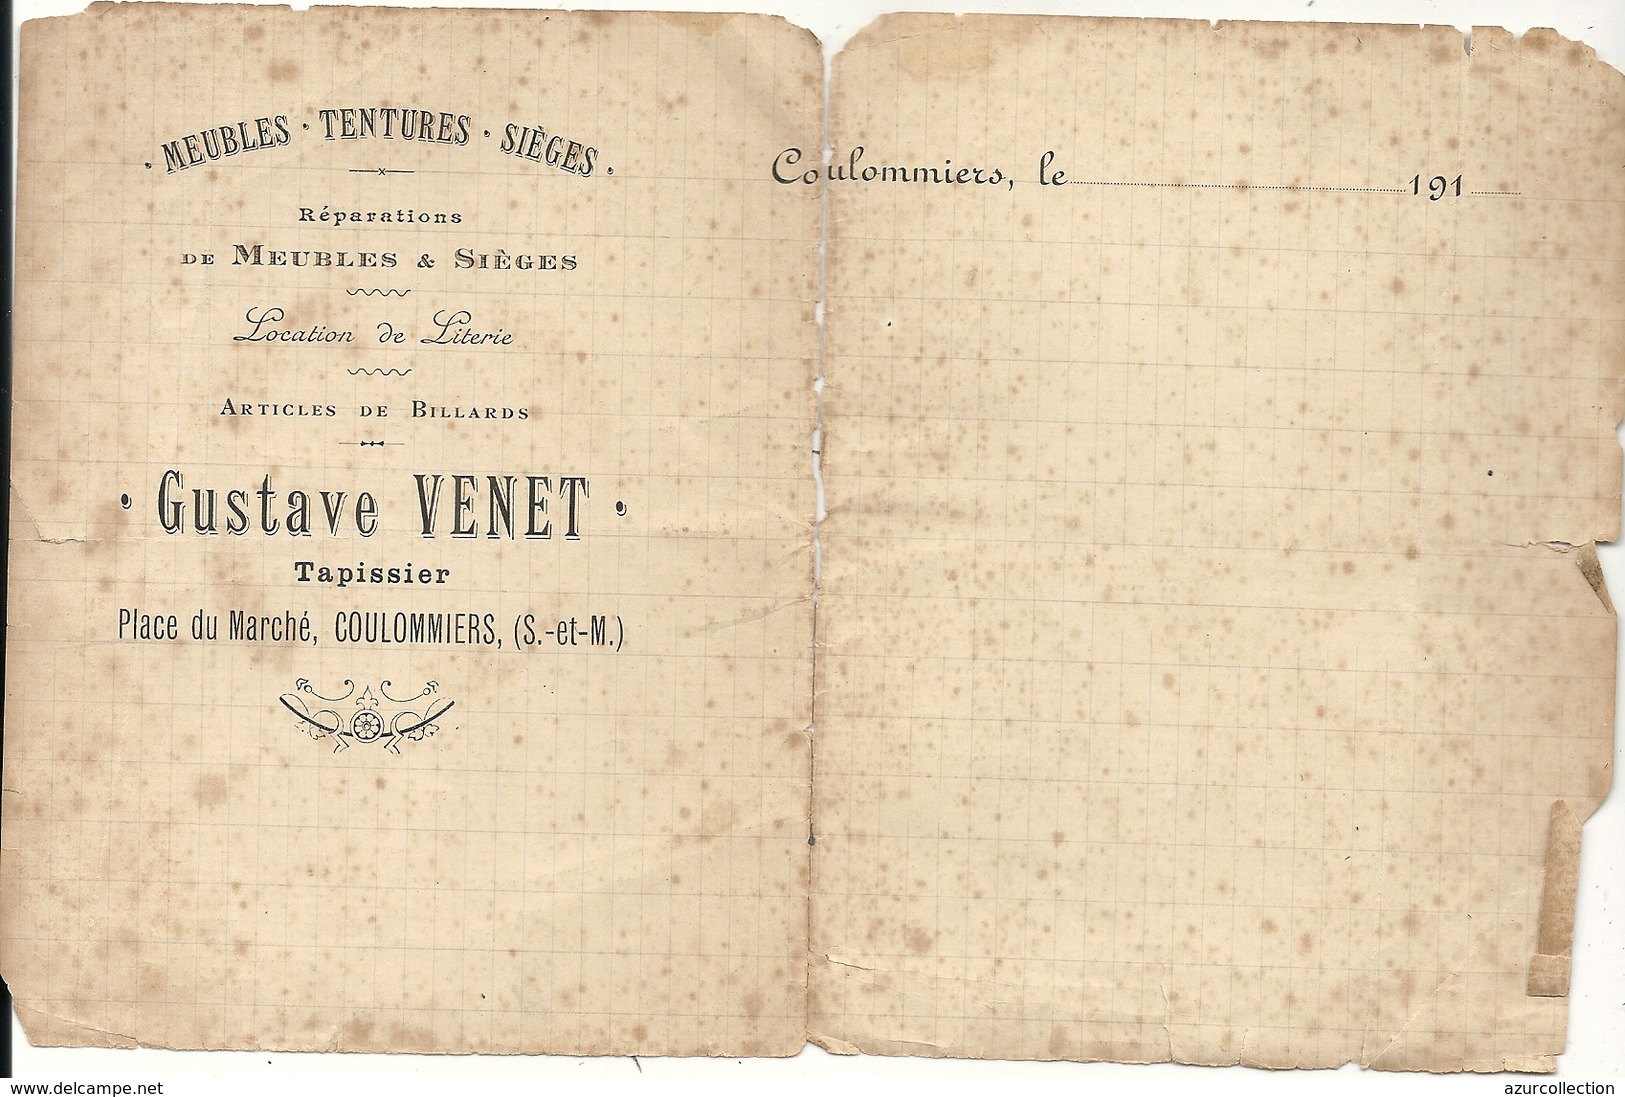 · MEUBLES · TENTURES · SIÈGES ·
Réparations
DE MEUBLES & SIÈGES
Location de Literie
ARTICLES DE BILLARDS
· Gustave VENET ·
Tapissier
Place du Marché, COULOMMIERS, (S.-et-M.)
Coulommiers, le 191
www.delcampe.net
azurcollection